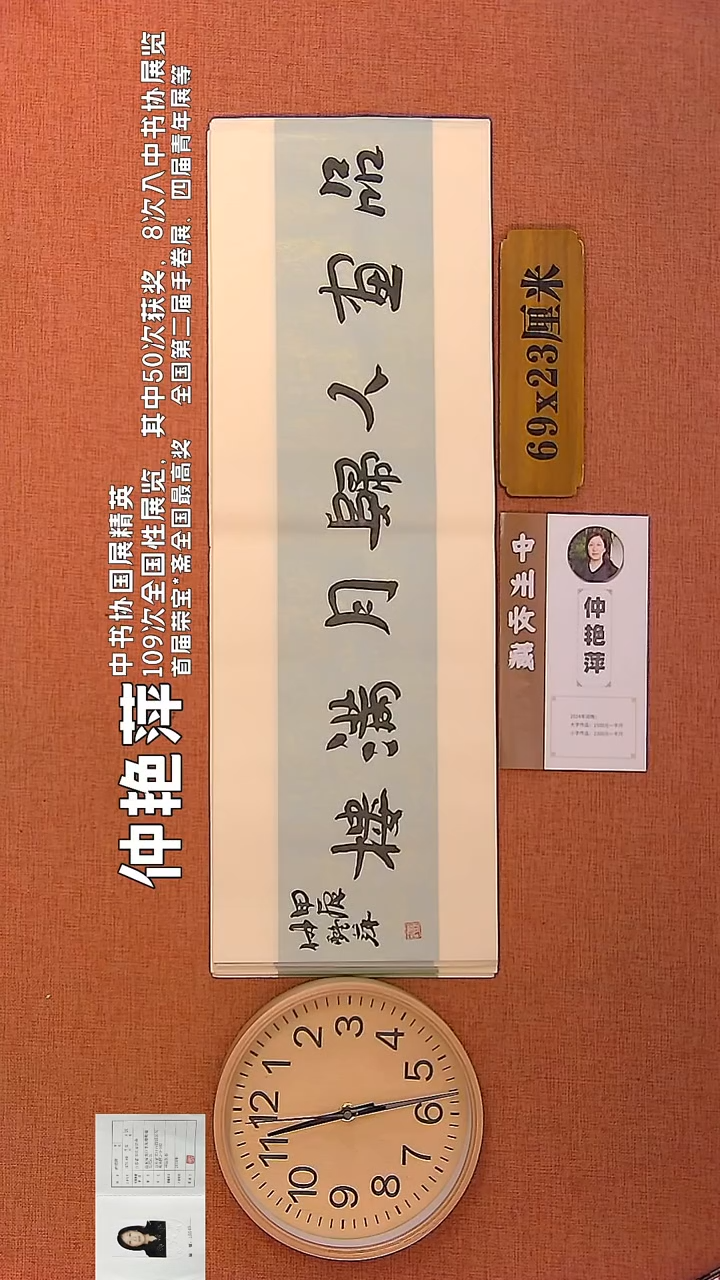 仲艳萍
中书协国展精英
109次全国性展览，其中50次获奖，8次入中书协展览
首届荣宝*斋全国最高奖 全国第二届手卷展、四届青年展等
品畫人歸月滿樓
甲辰
仲艷萍
69x23厘米
仲艳萍
12
1
2
3
4
5
6
7
8
9
10
11